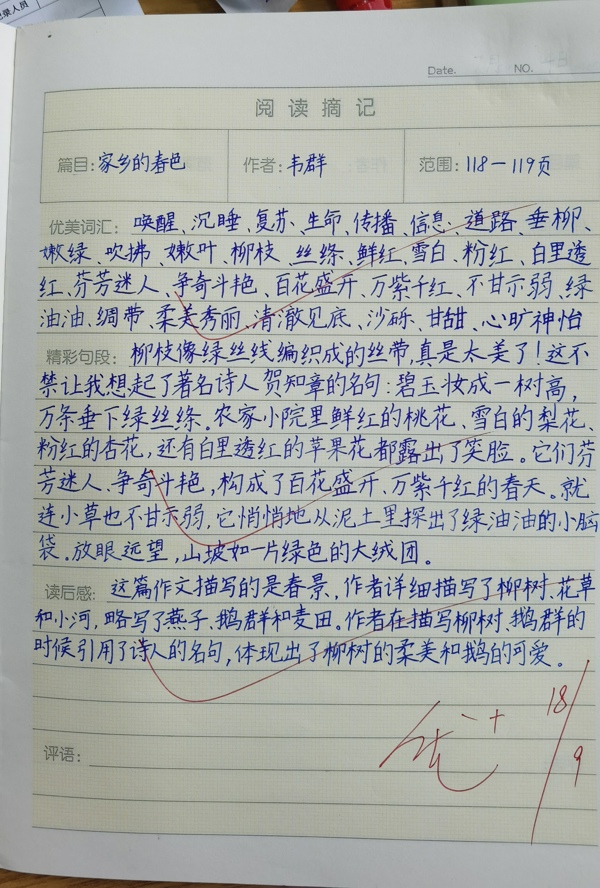 录人员
Date. NO.
阅读摘记
篇目:家乡的春色 作者:韦群 范围:118—119页
优美词汇:唤醒、沉睡、复苏、生命、传播、信息、道路、垂柳、
嫩绿、吹拂、嫩叶、柳枝、丝绦、鲜红、雪白、粉红、白里透
红、芬芳迷人、争奇斗艳、百花盛开、万紫千红、不甘示弱、绿
油油、绸带、柔美秀丽、清澈见底、沙砾、甘甜、心旷神怡
精彩句段:柳枝像绿丝线编织成的丝带,真是太美了!这不
禁让我想起了著名诗人贺知章的名句:碧玉妆成一树高,
万条垂下绿丝绦。农家小院里鲜红的桃花、雪白的梨花、
粉红的杏花,还有白里透红的苹果花都露出了笑脸。它们芬
芳迷人、争奇斗艳,构成了百花盛开、万紫千红的春天。就
连小草也不甘示弱,它悄悄地从泥土里探出了绿油油的小脑
袋。放眼远望,山坡如一片绿色的大绒团。
读后感:这篇作文描写的是春景、作者详细描写了柳树、花草
和小河,略写了燕子、鹅群和麦田。作者在描写柳树、鹅群的
时候引用了诗人的名句,体现出了柳树的柔美和鹅的可爱。
优++
18/9
评语: